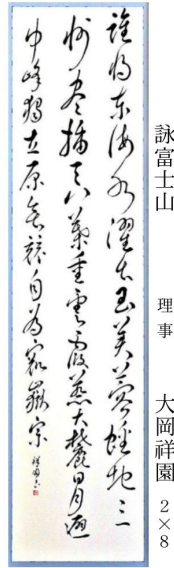 詠富士山　理事　大岡祥園　2×8
誰将東海水濯出玉芙蓉蟠地三
州盡挿天八葉重雲霞蒸大麓日月避
中峰獨立原無競自為衆嶽宗 祥園